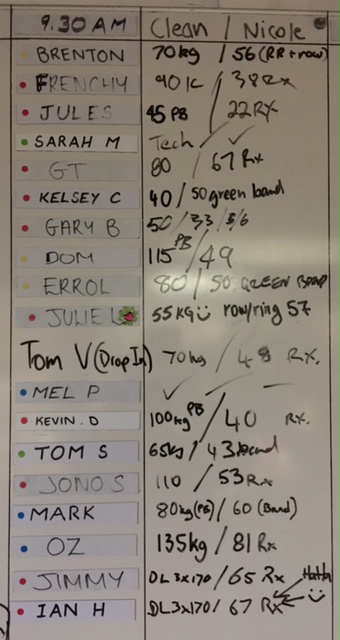 9.30 AM Clean / Nicole
BRENTON 70kg / 56 (RR + row)
FRENCHY 90K / 38 Rx
JULES 45 PB / 22 RX
SARAH M Tech / ✓
GT 80 / 67 Rx
KELSEY C 40 / 50 green band
GARY B 50 / 33 / 5/6
DOM 115 PB / 49
ERROL 80 / 50 GREEN BAND
JULIE L 55KG row/ring 57
Tom V (Drop In) 70kg / 48 RX.
MEL P ✓ /
KEVIN.D 100kg PB / 40 RX.
TOM S 65kg / 43 band
JONO S 110 / 53 Rx
MARK 80kg (PB) / 60 (Band)
OZ 135kg / 81 Rx
JIMMY DL 3x170 / 65 Rx
IAN H DL 3x170 / 67 Rx